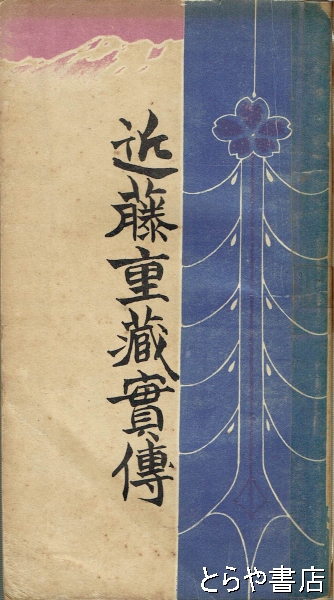 近藤重藏實傳
とらや書店